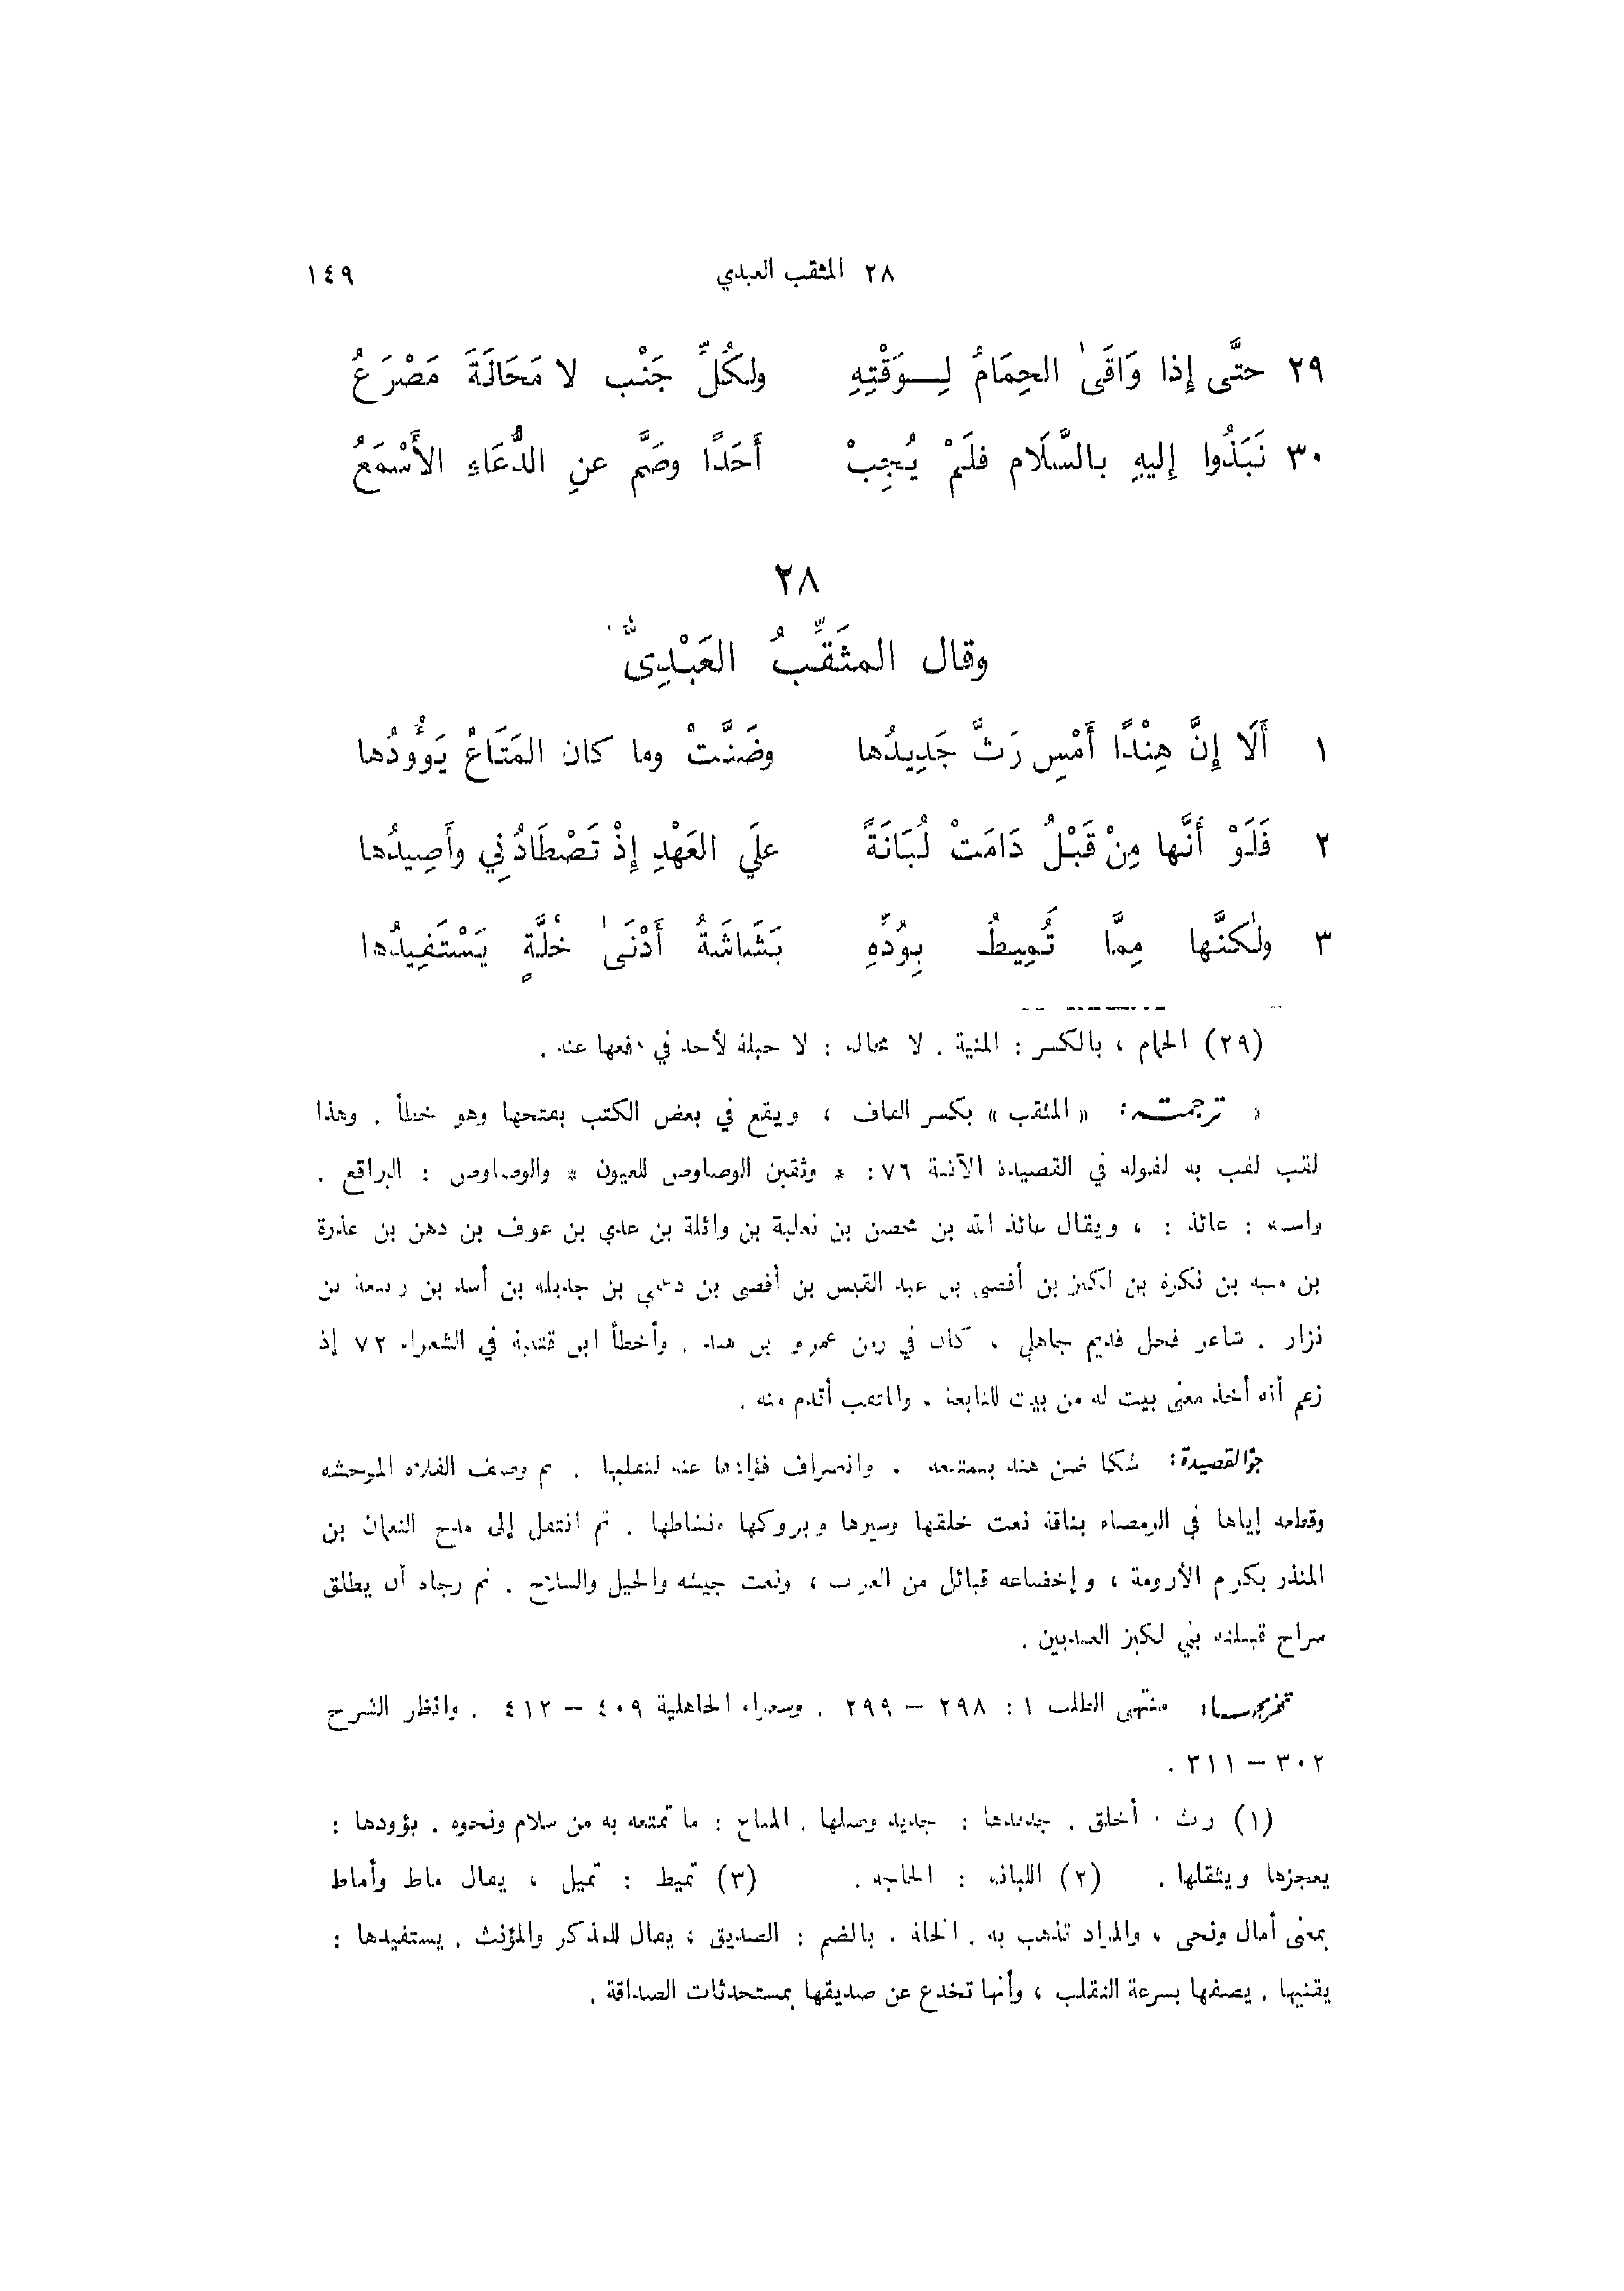 ٢٨ المثقب العبدي ١٤٩
٢٩ حتَّى إِذا وَافَىٰ الحِمَامُ لِـوَقْتِهِ ولكُلِّ جَنْبٍ لا مَحَالَةَ مَصْرَعُ
٣٠ نَبَذُوا إِليهِ بالسَّلَامِ فلَمْ يُجِبْ أَحَدًا وصَمَّ عنِ الدُّعَاءِ الأَسْمَعُ
٢٨
وقال المثَقِّبُ العَبْدِىُّ
١ أَلَا إِنَّ هِنْدًا أَمْسِ رَثَّ جَدِيدُها وضَنَّتْ وما كان المَتَاعُ يَؤُودُها
٢ فَلَوْ أَنَّها مِنْ قَبْلُ دَامَتْ لُبَانَةً علَي العَهْدِ إِذْ تَصْطَادُنِي وأَصِيدُها
٣ ولٰكنَّها مِمَّا تُمِيطُ بِوُدِّهِ بَشَاشَةُ أَدْنَىٰ خُلَّةٍ يَسْتَفِيدُها
(٢٩) الحمام ، بالكسر : المنية . لا محالة : لا حيلة لأحد في دفعها عنه .
* ترجمته : « المثقب » بكسر القاف ، ويقع في بعض الكتب بفتحها وهو خطأ . وهذا
لقب لقب به لقوله في القصيدة الآتية ٧٦ : * وثقبن الوصاوص للعيون * والوصاوص : البراقع .
واسمه : عائذ : ، ويقال عائذ الله بن محصن بن ثعلبة بن وائلة بن عدي بن عوف بن دهن بن عذرة
بن منبه بن نكرة بن لكيز بن أفصى بن عبد القيس بن أفصى بن دعمي بن جديلة بن أسد بن ربيعة بن
نزار . شاعر فحل قديم جاهلي ، كان في زمن عمرو بن هند . وأخطأ ابن قتيبة في الشعراء ٧٢ إذ
زعم أنه أخذ معنى بيت له من بيت للنابغة ، والمثقب أقدم منه .
جو القصيدة : شكا ضن هند بمتعه . وانصراف فؤادها عنه لتقلبها . ثم وصف الفلاة الموحشة
وقطعه إياها في الرمضاء بناقة نعت خلقها وسيرها وبروكها ونشاطها . ثم انتقل إلى مدح النعمان بن
المنذر بكرم الأرومة ، وإخضاعه قبائل من العرب ، ونعت جيشه والخيل والسلاح . ثم رجاه أن يطلق
سراح قبيلته بني لكيز العبديين .
تخريجها : منتهى الطلب ١ : ٢٩٨ – ٢٩٩ . وشعراء الجاهلية ٤٠٩ – ٤١٢ . وانظر الشرح
٣٠٢ – ٣١١ .
(١) رث : أخلق . جديدها : جديد وصلها . المتاع : ما تمتعه به من سلام ونحوه . يؤودها :
يعجزها ويثقلها . (٢) اللبانة : الحاجة . (٣) تميط : تميل ، يقال ماط وأماط
بمعنى أمال ونحى ، والمراد تذهب به . الخلة ، بالضم : الصديق ، يقال للمذكر والمؤنث . يستفيدها :
يقتنيها . يصفها بسرعة التقلب ، وأنها تخدع عن صديقها بمستحدثات الصداقة .